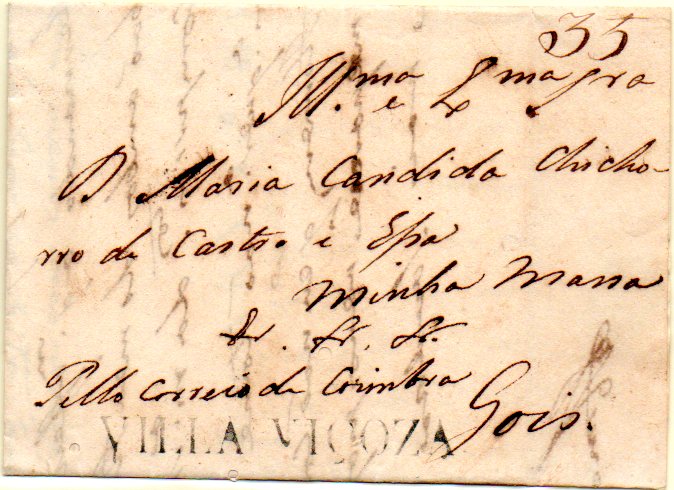 35
Ill.ma e Exma Sra
D Maria Candida Chicho-
rro de Castro e Spa
Minha Mana
&. &. &.
Pello Correio de Coimbra
Gois.
VILLA VIÇOZA